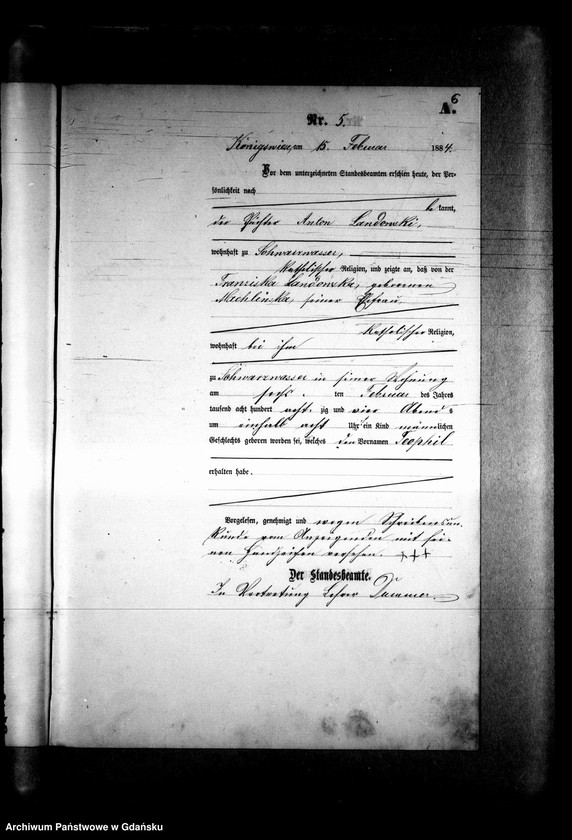 6
A.
Nr. 5.
Königswiese, am 15. Februar 1884.
Vor dem unterzeichneten Standesbeamten erschien heute, der Per-
sönlichkeit nach
be kannt,
der Pächter Anton Landowski,
wohnhaft zu Schwarzwasser,
katholischer Religion, und zeigte an, daß von der
Franziska Landowska, geborenen
Machlinska, seiner Ehefrau
katholischer Religion,
wohnhaft bei ihm
zu Schwarzwasser in seiner Wohnung
am sechs. ten Februar des Jahres
tausend acht hundert acht. zig und vier Abend s
um einhalb acht Uhr ein Kind männlichen
Geschlechts geboren worden sei, welches den Vornamen Teophil
erhalten habe.
Vorgelesen, genehmigt und wegen Schreibensun-
kunde vom Anzeigenden mit sei-
nen Handzeichen versehen. +++
Der Standesbeamte.
In Vertretung Lehrer
Archiwum Państwowe w Gdańsku